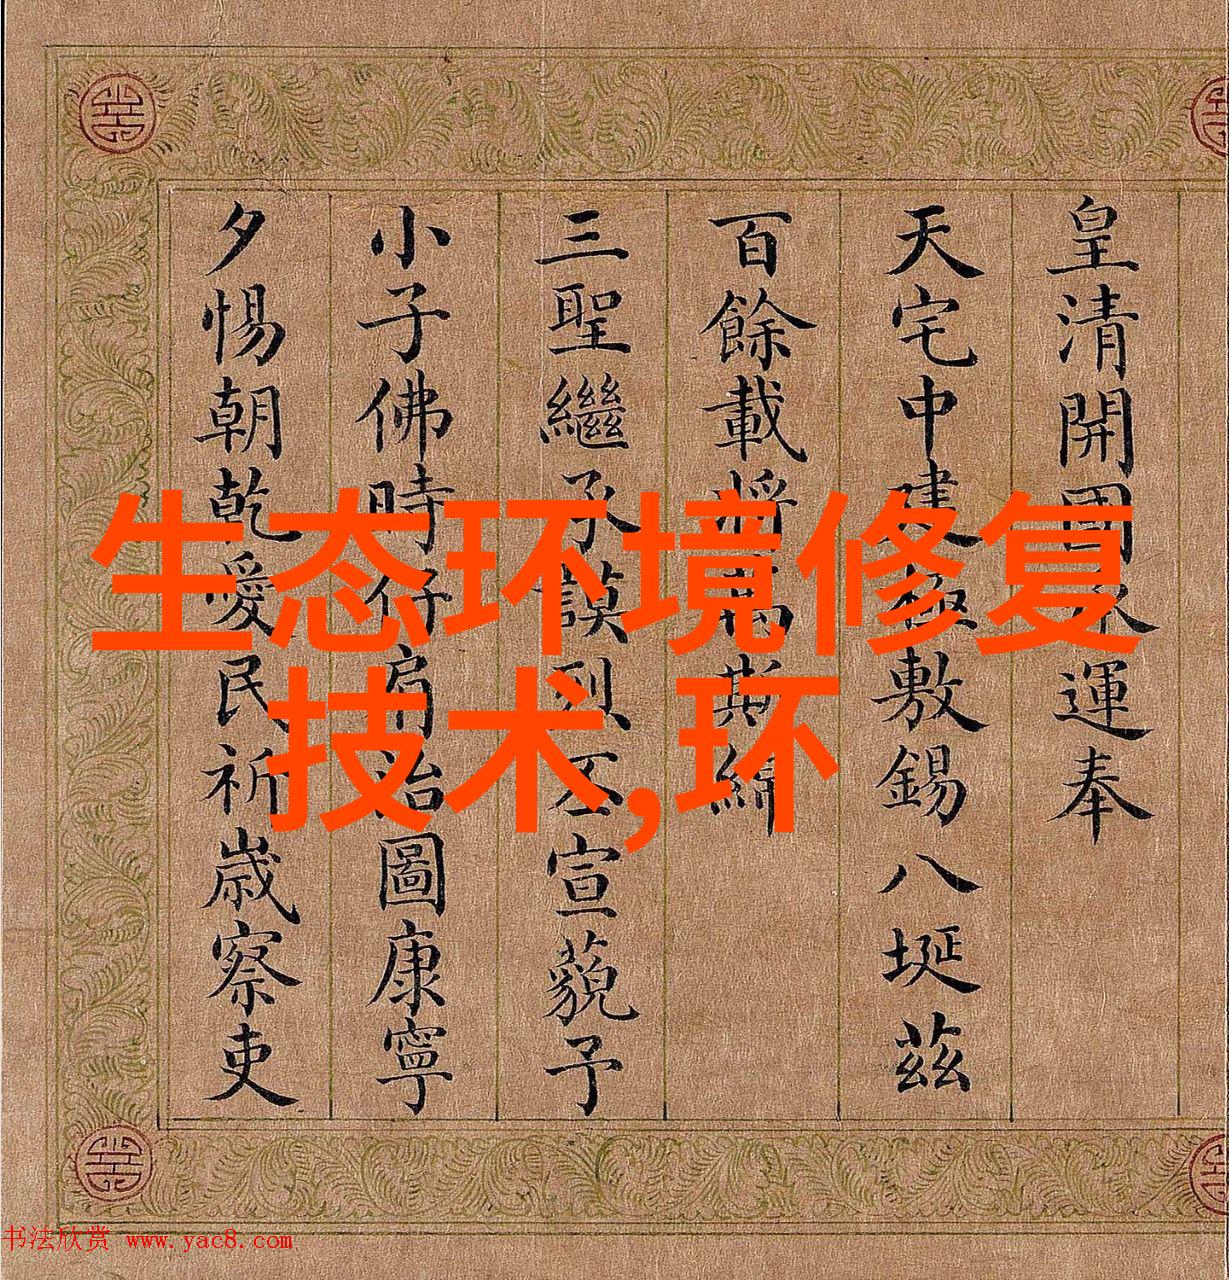 皇清開國承運奉
天宅中建極敷錫八埏茲
百餘載將萬斯綿
三聖繼承謨烈丕宣藐予
小子佛時仔肩治圖康寧
夕惕朝乾愛民祈歲察吏
生态环境修复
技术,环
书法欣赏 www.yac8.com